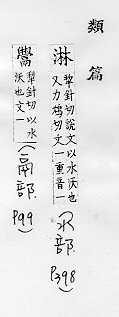 類篇
淋 犂針切說文以水沃也
又力鴆切文一重音一
(水部. P398)
犂針切以水
沃也文一
(鬲部. P99)